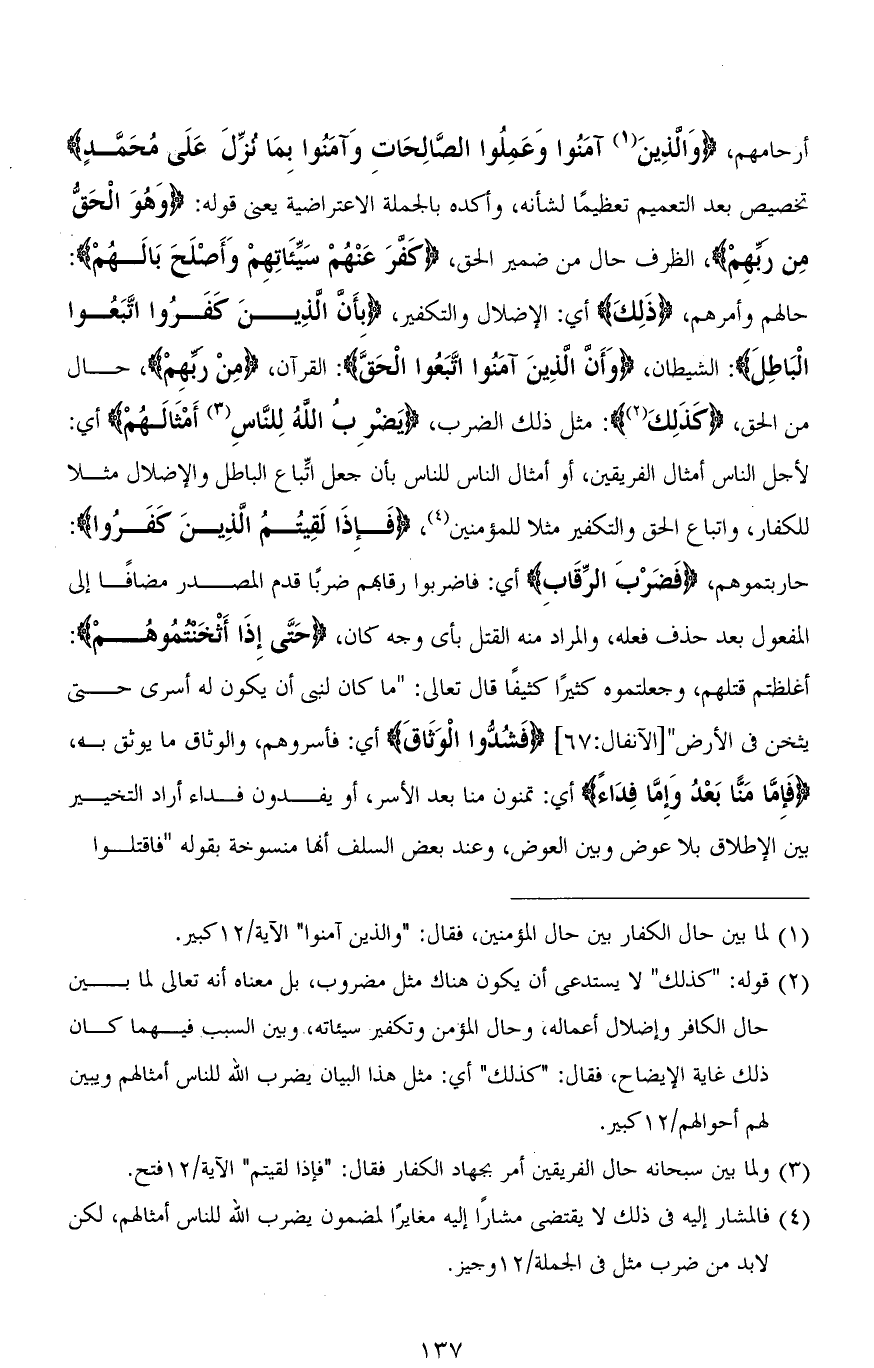 أرحامهم، ﴿وَالَّذِينَ(١) آمَنُوا وَعَمِلُوا الصَّالِحَاتِ وَآمَنُوا بِمَا نُزِّلَ عَلَى مُحَمَّدٍ﴾
تخصيص بعد التعميم تعظيمًا لشأنه، وأكده بالجملة الاعتراضية يعنى قوله: ﴿وَهُوَ الْحَقُّ
مِن رَبِّهِمْ﴾، الظرف حال من ضمير الحق، ﴿كَفَّرَ عَنْهُمْ سَيِّئَاتِهِمْ وَأَصْلَحَ بَالَهُمْ﴾:
حالهم وأمرهم، ﴿ذَلِكَ﴾ أي: الإضلال والتكفير، ﴿بِأَنَّ الَّذِينَ كَفَرُوا اتَّبَعُوا
الْبَاطِلَ﴾: الشيطان، ﴿وَأَنَّ الَّذِينَ آمَنُوا اتَّبَعُوا الْحَقَّ﴾: القرآن، ﴿مِنْ رَبِّهِمْ﴾، حال
من الحق، ﴿كَذَلِكَ(٢)﴾: مثل ذلك الضرب، ﴿يَضْرِبُ اللَّهُ لِلنَّاسِ(٣) أَمْثَالَهُمْ﴾ أي:
لأجل الناس أمثال الفريقين، أو أمثال الناس للناس بأن جعل اتِّباع الباطل والإضلال مثلا
للكفار، واتباع الحق والتكفير مثلا للمؤمنين(٤)، ﴿فَإِذَا لَقِيتُمُ الَّذِينَ كَفَرُوا﴾:
حاربتموهم، ﴿فَضَرْبَ الرِّقَابِ﴾ أي: فاضربوا رقابهم ضربًا قدم المصدر مضافًا إلى
المفعول بعد حذف فعله، والمراد منه القتل بأى وجه كان، ﴿حَتَّى إِذَا أَثْخَنْتُمُوهُمْ﴾:
أغلظتم قتلهم، وجعلتموه كثيرًا كثيفًا قال تعالى: "ما كان لنبى أن يكون له أسرى حتى
يثخن فى الأرض"[الآنفال:٦٧] ﴿فَشُدُّوا الْوَثَاقَ﴾ أي: فأسروهم، والوثاق ما يوثق به،
﴿فَإِمَّا مَنًّا بَعْدُ وَإِمَّا فِدَاءً﴾ أي: تمنون منا بعد الأسر، أو يفدون فداء أراد التخيير
بين الإطلاق بلا عوض وبين العوض، وعند بعض السلف أنها منسوخة بقوله "فاقتلوا
(١) لما بين حال الكفار بين حال المؤمنين، فقال: "والذين آمنوا" الآية/١٢كبير.
(٢) قوله: "كذلك" لا يستدعى أن يكون هناك مثل مضروب، بل معناه أنه تعالى لما بين
حال الكافر وإضلال أعماله، وحال المؤمن وتكفير سيئاته، وبين السبب فيهما كان
ذلك غاية الإيضاح، فقال: "كذلك" أي: مثل هذا البيان يضرب الله للناس أمثالهم ويبين
لهم أحوالهم/١٢كبير.
(٣) ولما بين سبحانه حال الفريقين أمر بجهاد الكفار فقال: "فإذا لقيتم" الآية/١٢فتح.
(٤) فالمشار إليه فى ذلك لا يقتضى مشارًا إليه مغايرًا لمضمون يضرب الله للناس أمثالهم، لكن
لابد من ضرب مثل فى الجملة/١٢وجيز.
١٣٧